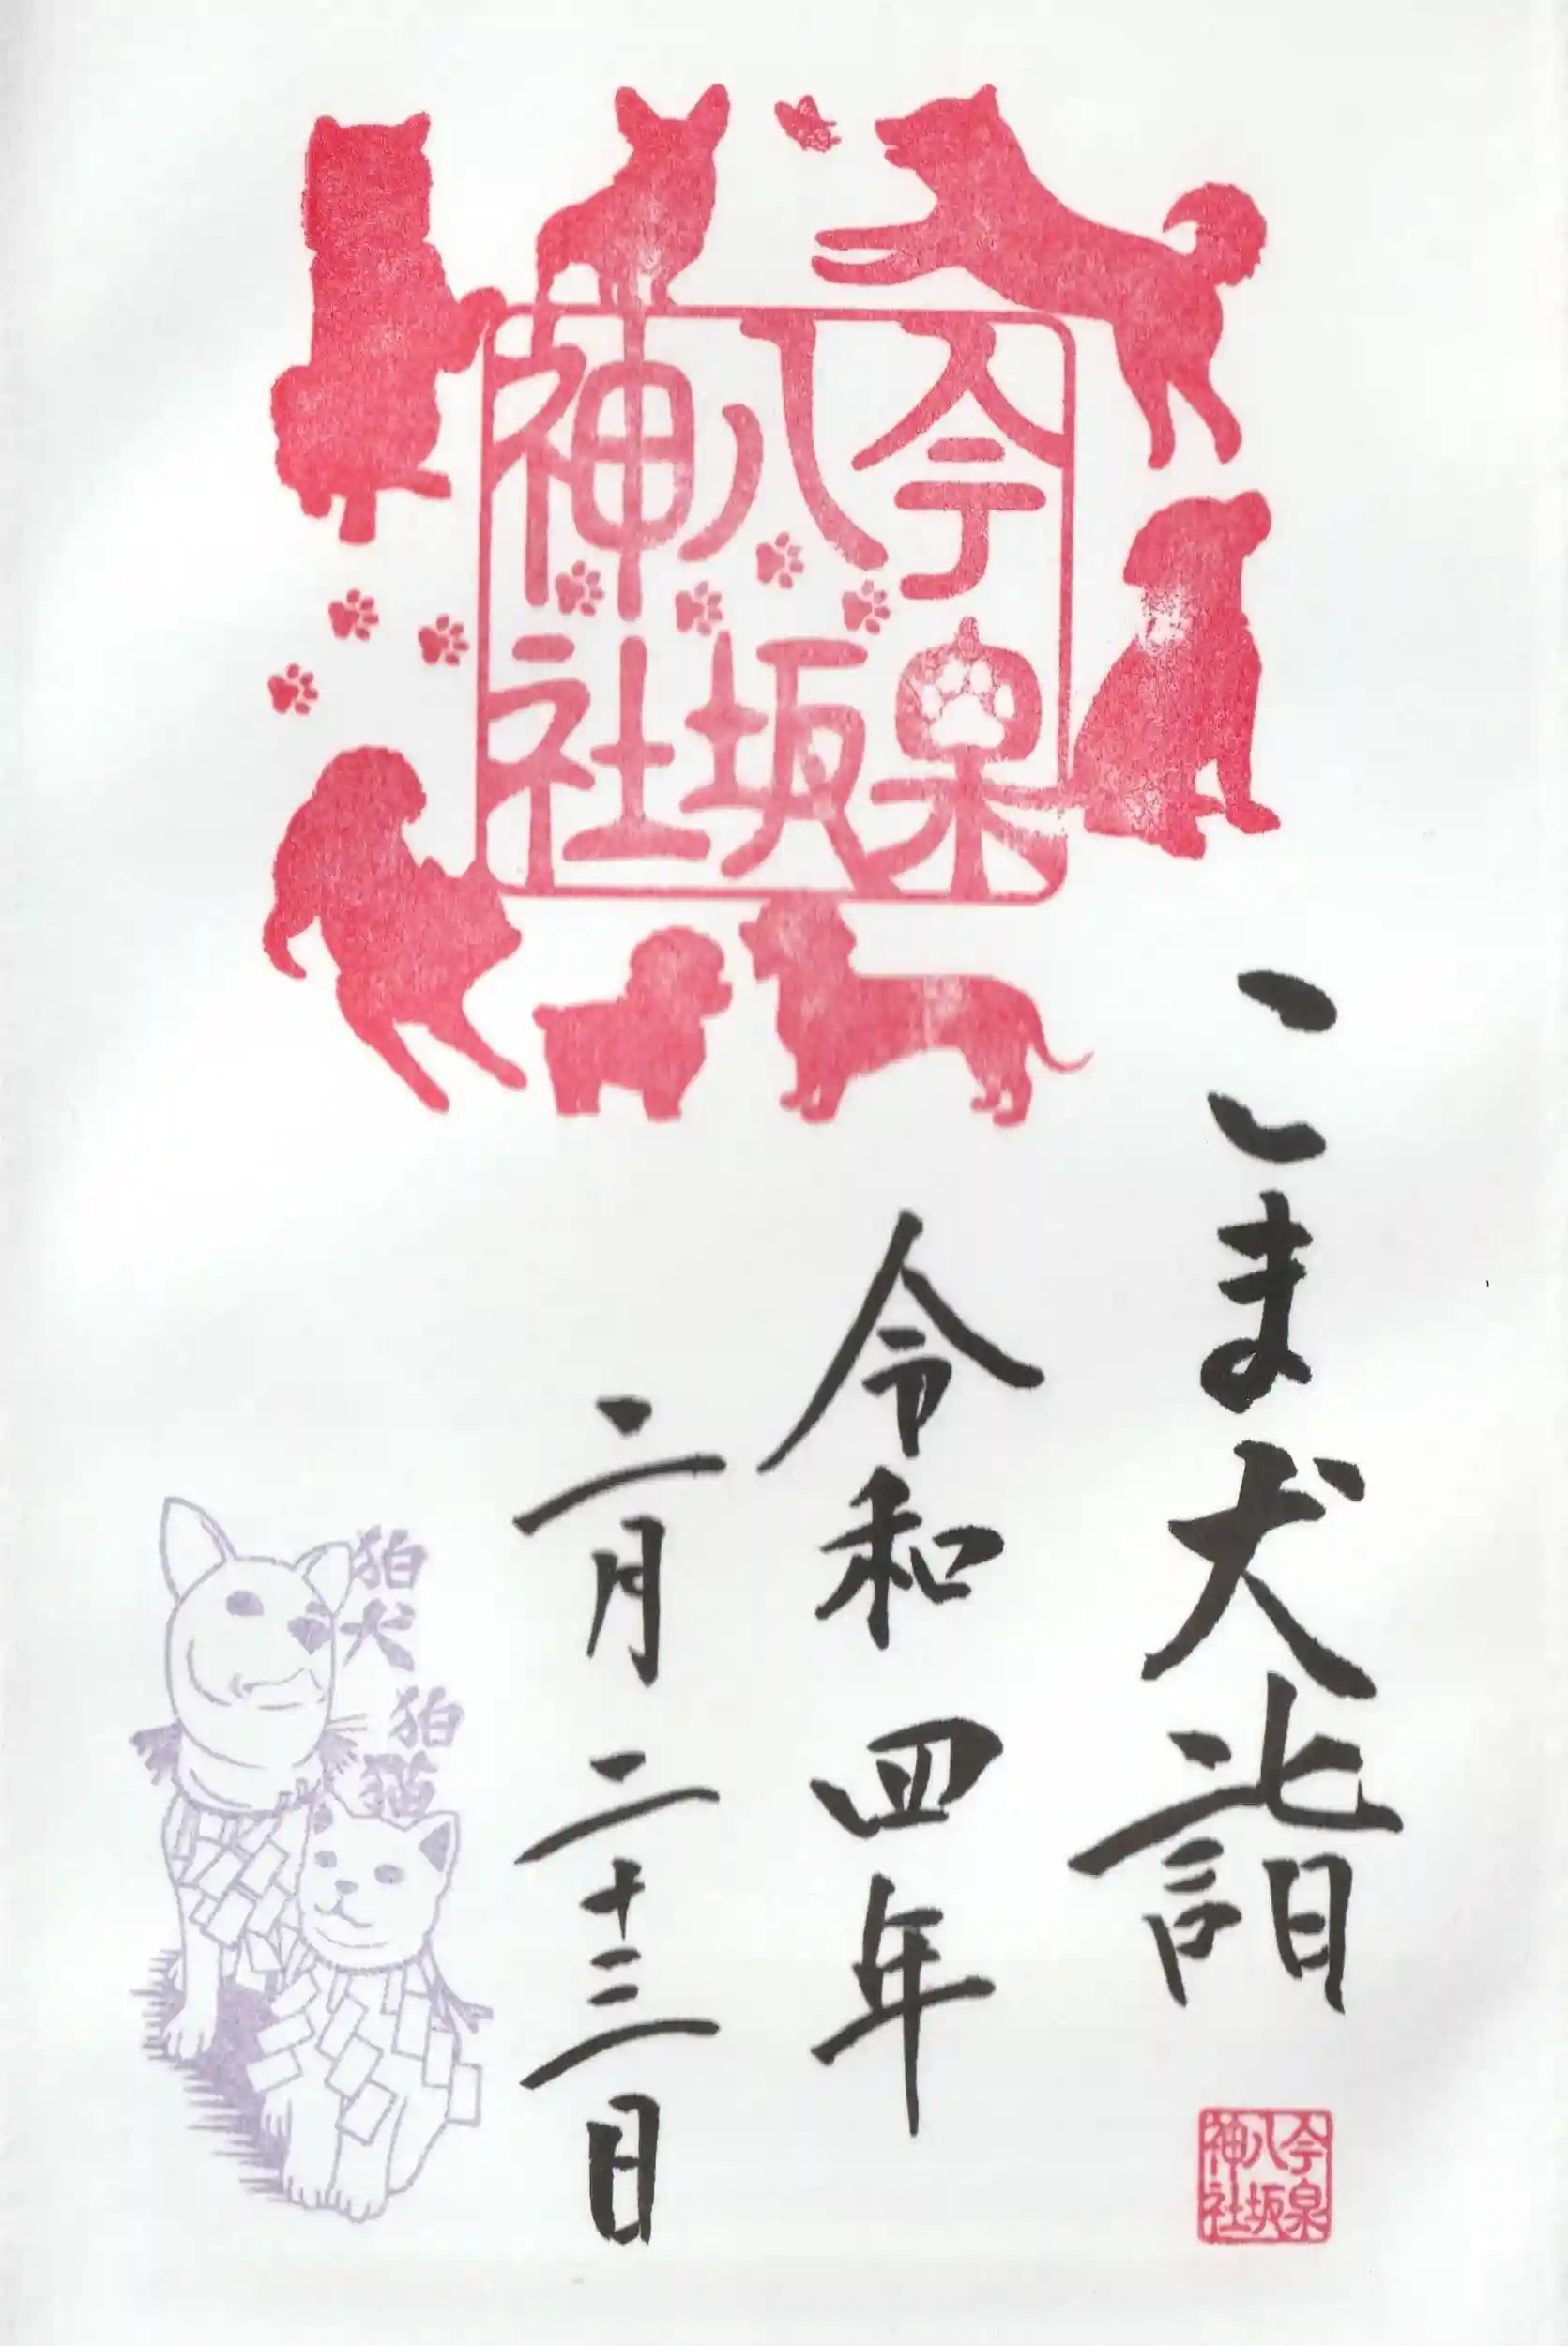 今泉
八坂
神社
こま犬詣
令和四年
二月二十三日
狛犬
狛猫
今泉
八坂
神社